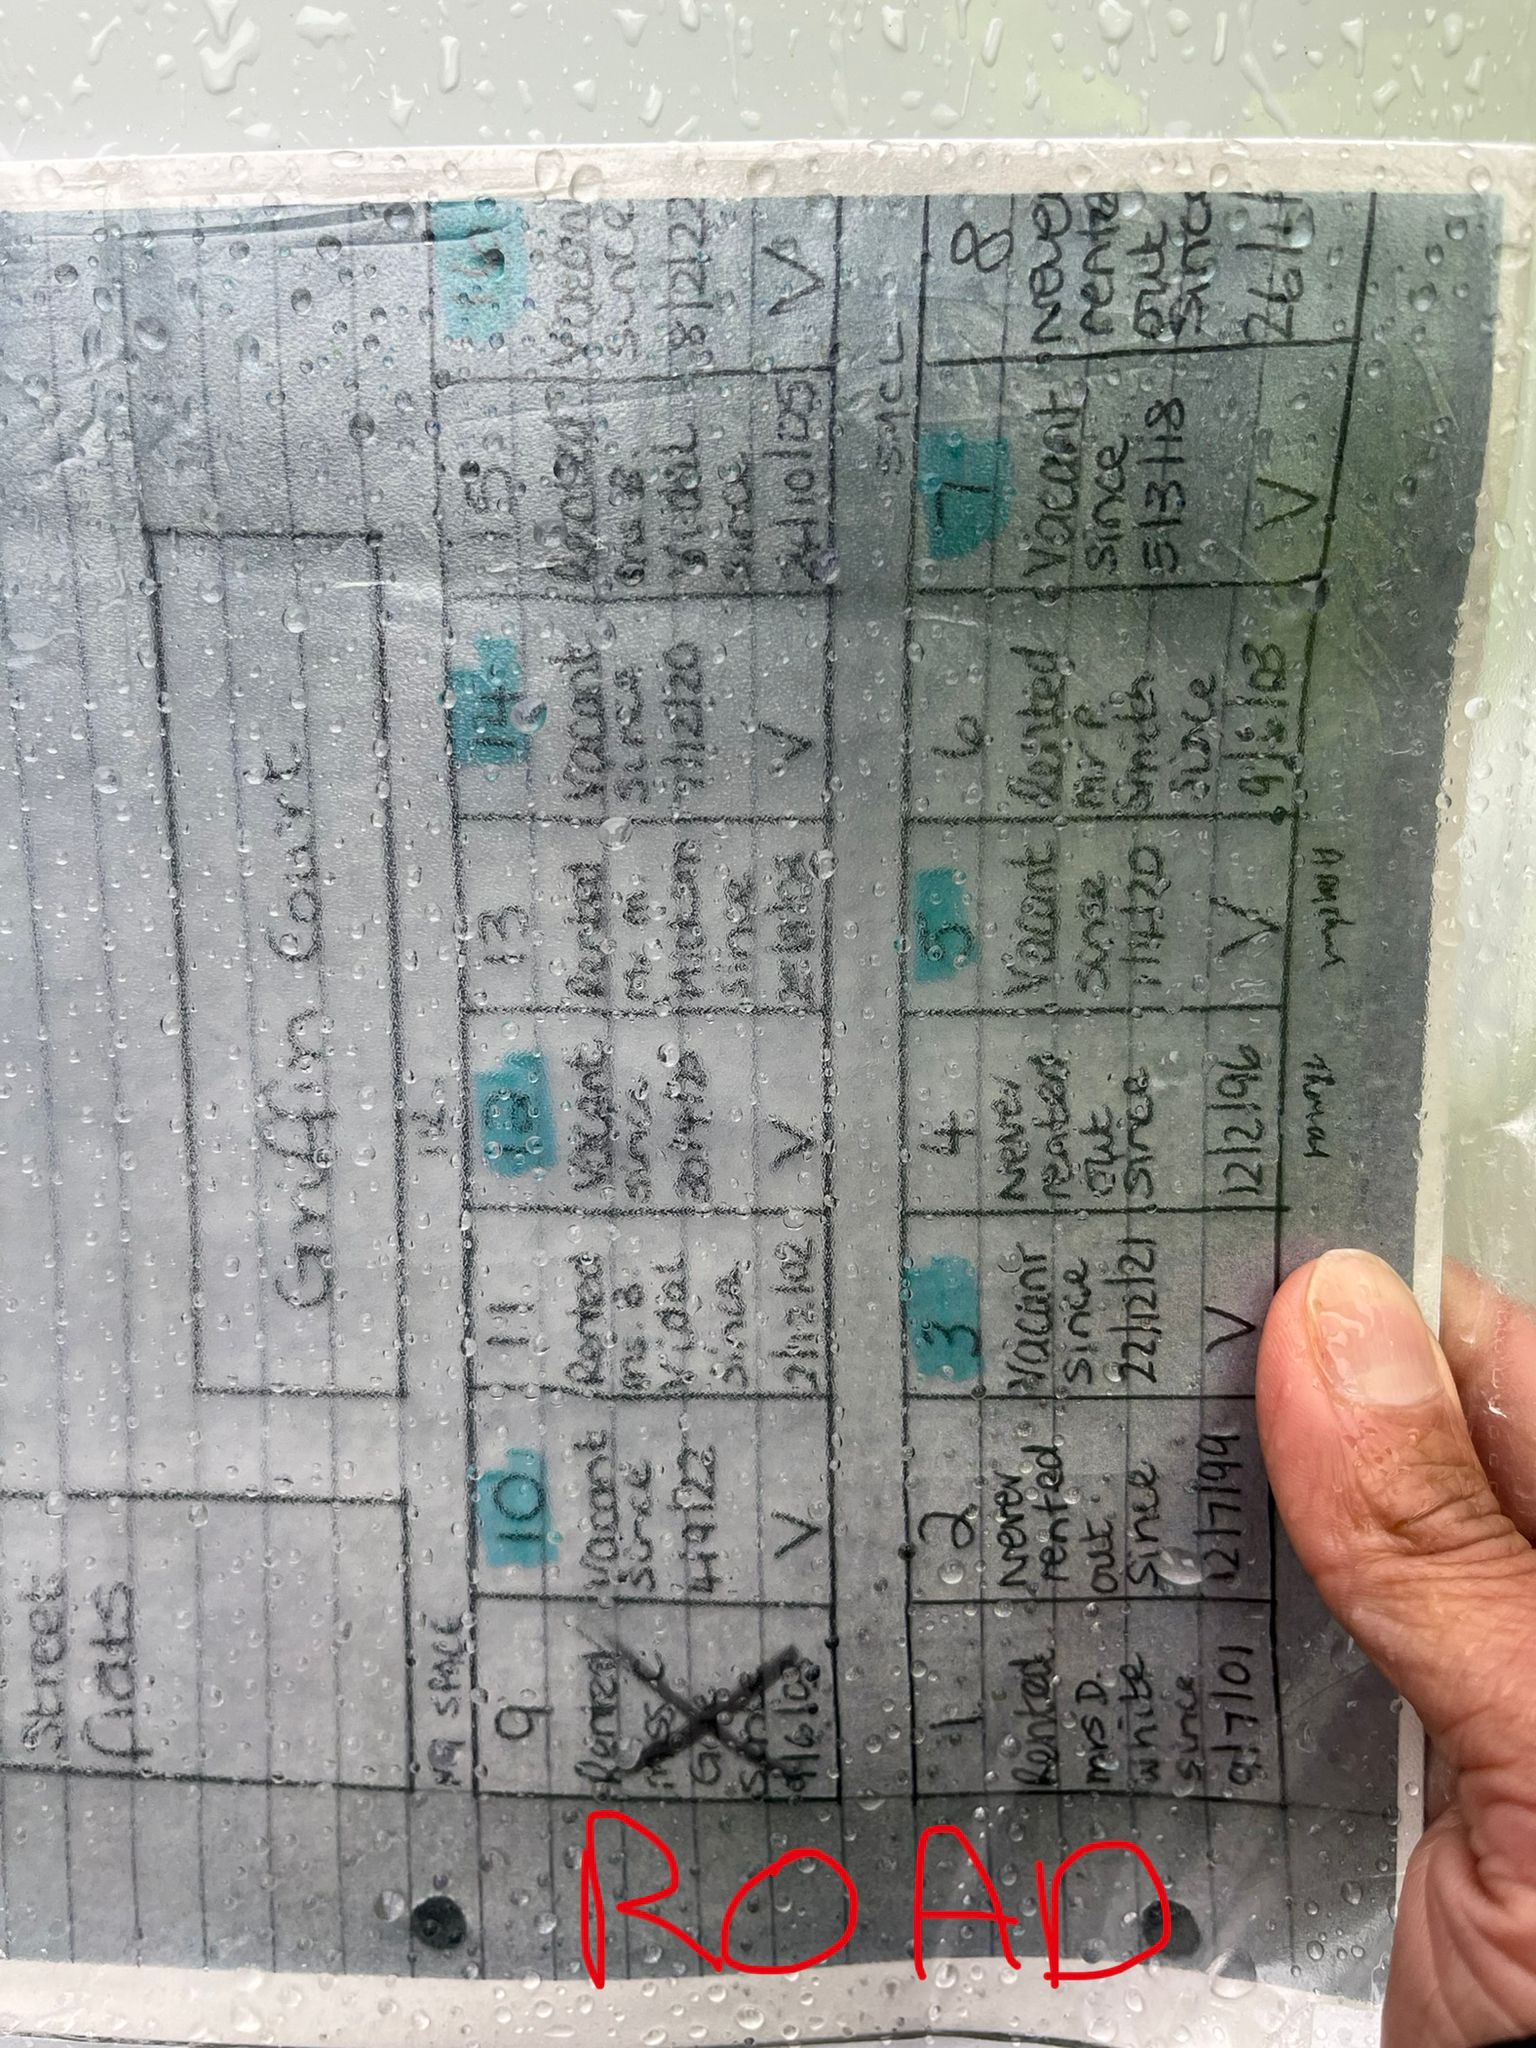 Street
flats
Griffin Court
NO SPACE
9
Rented
miss C
Since
9/6/03
10
Vacant
Since
4/9/22
V
11
Rented
ms. B
Vidal
Since
12
Vacant
since
V
13
Rented
mr m
since
14
Vacant
since
7/12/20
V
15
Vidal
since
24/10/05
16
Vacant
since
8/12/22
V
1
Rented
mrs D.
White
since
9/7/01
2
Never
rented
out.
Since
12/7/99
3
Vacant
Since
22/12/21
V
4
Never
rented
out
Since
12/2/96
5
Vacant
Since
11/4/20
V
6
Rented
mr P.
Smith
Since
9/6/03
7
Vacant
since
5/3/18
V
8
Never
out
Since
ROAD